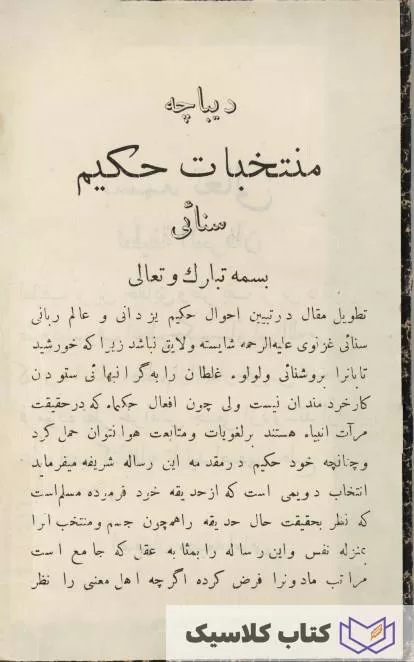 دیباچه
منتخبات حکیم
سنائی
بسمه تبارك وتعالی
تطویل مقال درتبیین احوال حکیم یزدانی و عالم ربانی
سنائی غزنوی علیهالرحمه شایسته ولایق نباشد زیرا که خورشید
تابانرا بروشنائی ولولوء غلطان را به گرانبهائی ستودن
کارخردمندان نیست ولی چون افعال حکماء که درحقیقت
مرآت انبیاء هستند برلغویات ومتابعت هوا نتوان حمل کرد
وچنانچه خود حکیم درمقدمه این رساله شریفه میفرماید
انتخاب دویمی است که ازحدیقه خود فرموده مسلماست
که نظر بحقیقت حال حدیقه راهمچون جسم ومنتخب آنرا
بمنزله نفس واین رساله را بمثابه عقل که جامع است
مراتب مادونرا فرض کرده اگرچه اهل معنی را نظر
کتاب کلاسیک